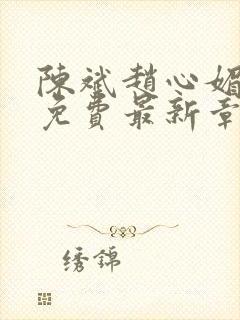 陳斌趙心媚
免費最新章
绣錦